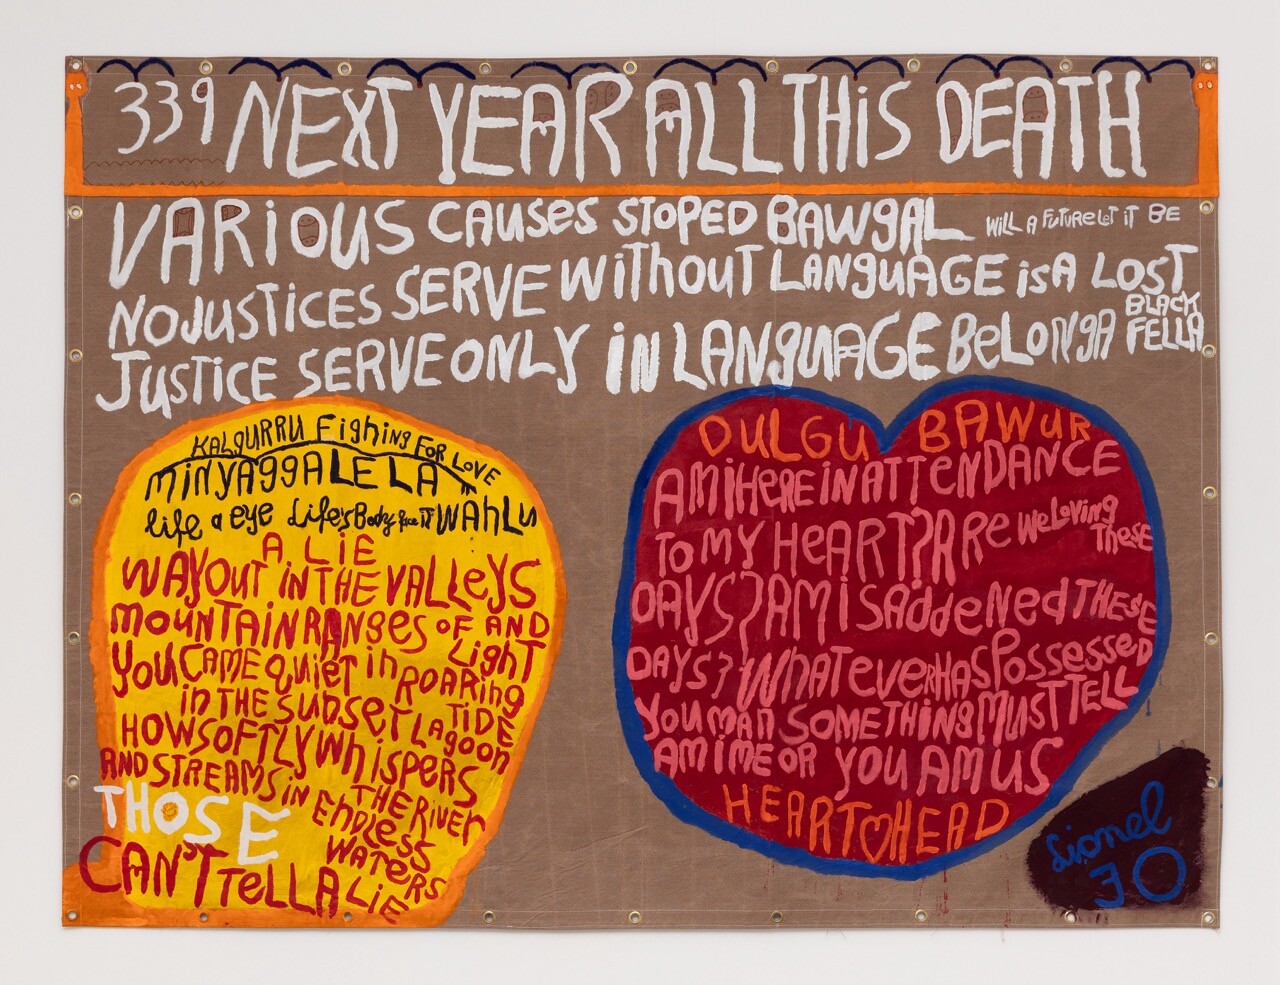 339 NEXT YEAR ALL THIS DEATH
VARIOUS CAUSES STOPED BAWgAL WILL A FUTURE LET iT BE
NOJUSTiCES SERVE WiThOuT LANguAGE iS A LOST
JUSTiCE SERVE ONLY iN LANguAGE BeLONgA BLACK FELLA
KALgURRU FighiNg FOR LOVE
MiNyAggALELA
life a eye Life's Body face iT WAhLu
A LiE
WAYOUT iN THE VALLeyS
MOUNTAiN RANgeS OF AND
YOU CAME QUiET iN ROARiNg LighT
iN THE SUNSET LAgOON TiDE
HOW SOFTLY WhiSPERS
AND STREAMS iN THE RiVER
THOSE ENDLESS WATERS
CAN'T TeLL A LiE
DULGU BAWUR
AM i HeRE iN ATTeNDANCE
TO MY HEART? ARe We LOViNg TheSE
DAYS? AM i SADDENed THESE
DAYS? WhATeVeR HAS POSSeSSeD
YOU MAN SOMETHiNg MUST TELL
AM i ME OR YOU AM US
HEART HEAD
Lionel
JO